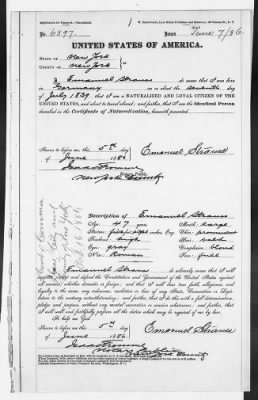 No. 6397.
Issued June 7/86.
UNITED STATES OF AMERICA.
STATE OF New York
COUNTY OF New York
I, Emanuel Strauss do swear that I was born
in Germany on or about the seventh day
of July 1839, that I am a NATURALIZED AND LOYAL CITIZEN OF THE
UNITED STATES, and about to travel abroad; and further, that I am the Identical Person
described in the Certificate of Naturalization, herewith presented.
Sworn to before me, this 5th day
of June 1886
Emanuel Strauss
Notary Public
New York County
Description of Emanuel Strauss
Age: 47 years
Mouth: large
Stature: Eng.
Chin: prominent
Forehead: high
Hair: bald
Eyes: gray
Complexion: blond
Nose: Roman
Face: full
I, Emanuel Strauss do solemnly swear that I will
support, protect, and defend the Constitution and Government of the United States against
all enemies, whether domestic or foreign; and that I will bear true faith, allegiance, and
loyalty to the same, any ordinance, resolution or law of any State, Convention or Legislature
to the contrary notwithstanding; and further, that I do this with a full determination,
pledge, and purpose, without any mental reservation or evasion whatsoever; and further, that
I will well and faithfully perform all the duties which may be required of me by law.
So help me God.
Sworn to before me, this 5th day
of June 1886
Emanuel Strauss
Notary Public
New York County